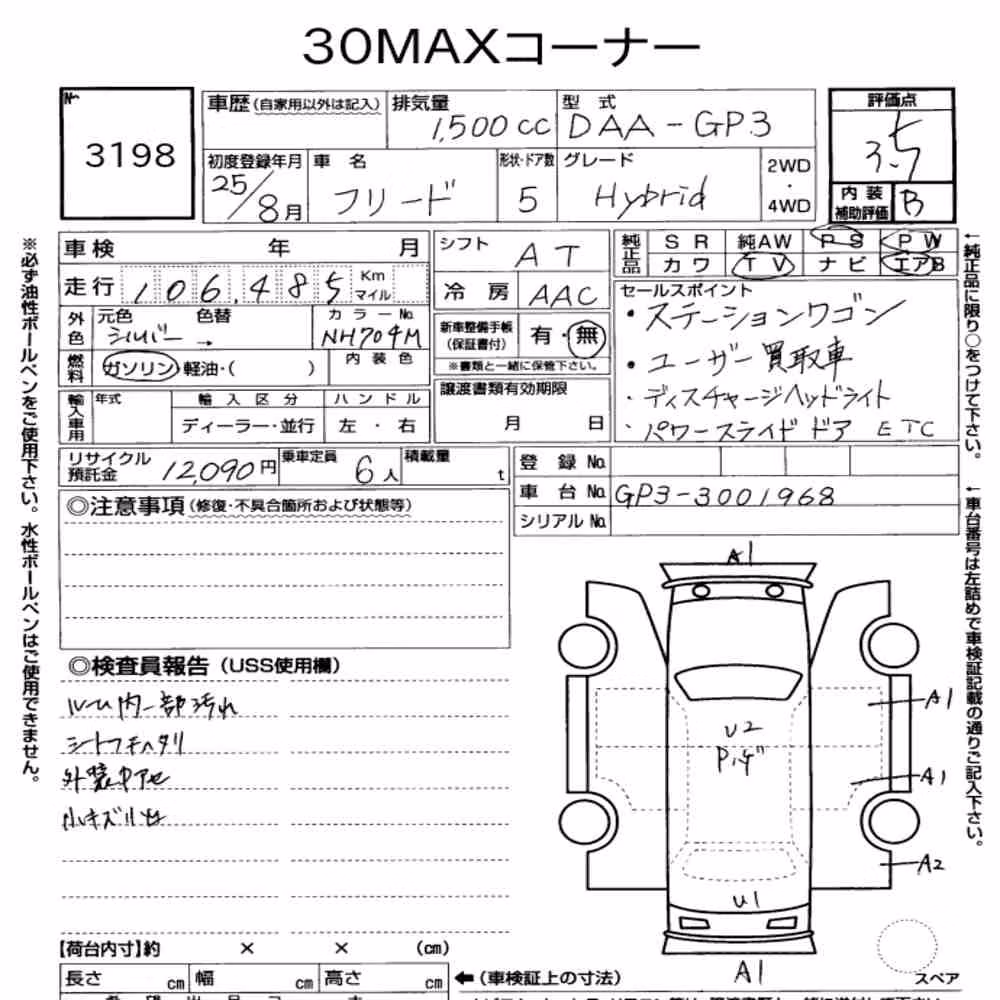 30MAXコーナー
No.
3198
車歴(自家用以外は記入)
排気量
1,500cc
型式
DAA-GP3
評価点
3.5
内装補助評価
B
初度登録年月
25/8月
車名
フリード
形状・ドア数
5
グレード
Hybrid
2WD
・
4WD
車検 年 月
シフト
AT
純正品
SR 純AW PS PW
カワ TV ナビ エアB
走行 106,485 Km マイル
冷房 AAC
セールスポイント
・ステーションワゴン
・ユーザー買取車
・ディスチャージヘッドライト
・パワースライドドア ETC
外色
元色 色替
シルバー →
カラーNo.
NH704M
新車整備手帳
(保証書付)
有・無
※書類と一緒に保管下さい。
燃料
ガソリン・軽油・( )
内装色
譲渡書類有効期限
月 日
輸入車用
年式
輸入区分
ディーラー・並行
ハンドル
左・右
リサイクル預託金 12,090円
乗車定員 6人
積載量 t
登録No.
車台No. GP3-3001968
シリアルNo.
◎注意事項(修復・不具合箇所および状態等)
◎検査員報告(USS使用欄)
ルーム内一部汚れ
外装
A1
U2
A1
A1
A2
U1
A1
スペア
【荷台内寸】約 × × (cm)
長さ cm 幅 cm 高さ cm
←(車検証上の寸法)
※必ず油性ボールペンをご使用下さい。水性ボールペンはご使用できません。
←純正品に限り○をつけて下さい。
←車台番号は左詰めで車検証記載の通りご記入下さい。